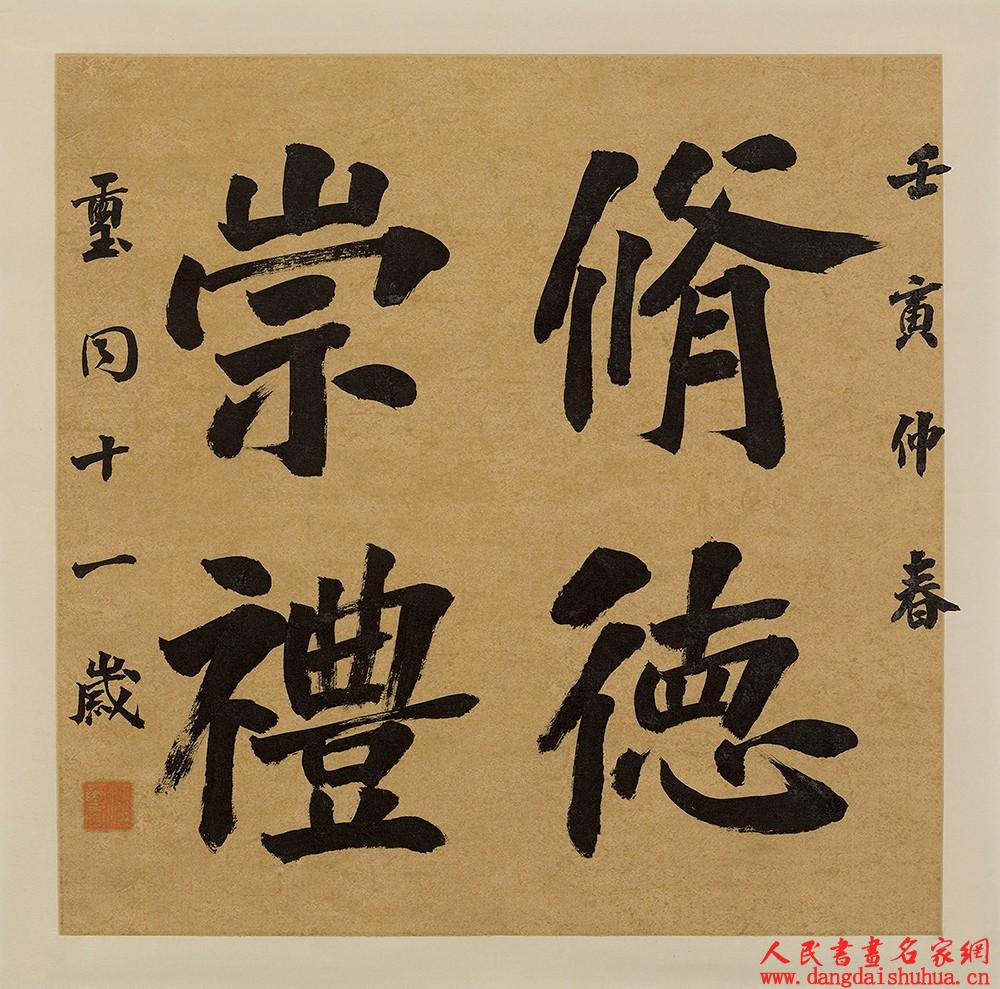 壬寅仲春
脩徳
崇禮
璽同十一歲
人民書畫名家網
www.dangdaishuhua.cn